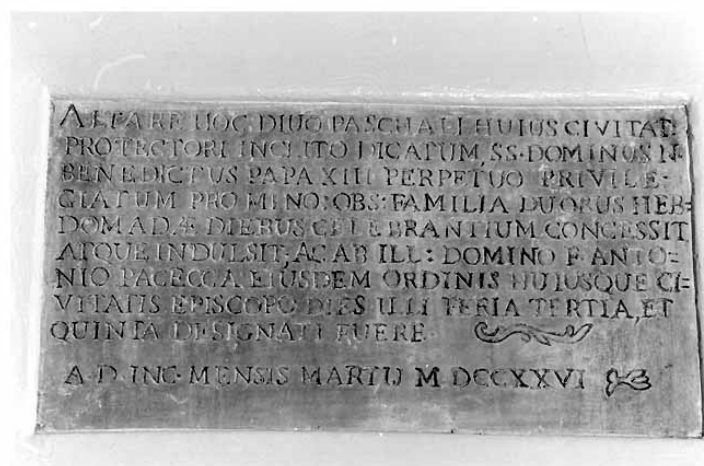 ALTARE HOC DIVO PASCHALI HUIUS CIVITAT:
PROTECTORI INCLITO DICATUM, SS· DOMINUS N·
BENEDICTUS PAPA XIII PERPETUO PRIVILE-
GIATUM PRO MINO: OBS: FAMILIA DUORUS HEB=
DOMADÆ DIEBUS CELEBRANTIUM CONCESSIT
ATQUE INDULSIT; AC AB ILL: DOMINO F· ANTO=
NIO PACECCA EIUSDEM ORDINIS HUIUSQUE CI=
VITATIS EPISCOPO DIES ILLI FERIA TERTIA, ET
QUINTA DESIGNATI FUERE·
A· D· INC· MENSIS MARTIJ M DCCXXVI